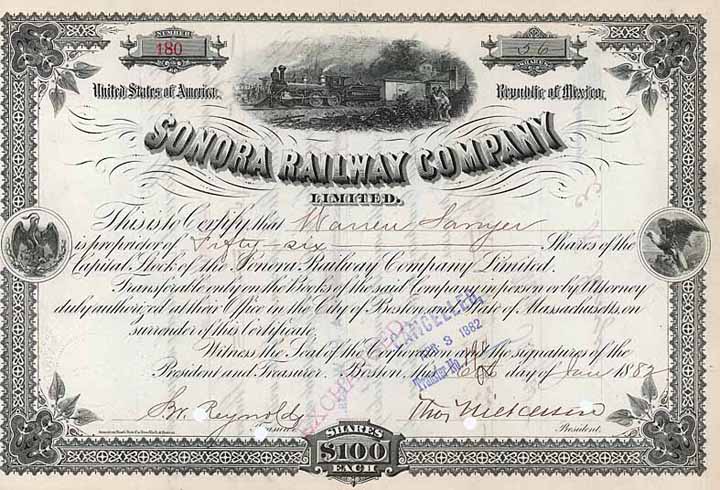 NUMBER
180
56
SHARES
United States of America.
Republic of Mexico.
SONORA RAILWAY COMPANY
LIMITED.
This is to Certify, that Warren Sawyer
is proprietor of Fifty-six Shares of the
Capital Stock of the Sonora Railway Company Limited.
Transferable only on the Books of the said Company in person or by Attorney
duly authorized at their Office in the City of Boston and State of Massachusetts, on
surrender of this Certificate.
CANCELLED
3 1882
Transfer No
EXCHANGED
Witness the Seal of the Corporation and the signatures of the
President and Treasurer. Boston, this day of Jan 1882
S.W. Reynolds
Tho's Nickerson
Treasurer.
President.
SHARES
$100
EACH